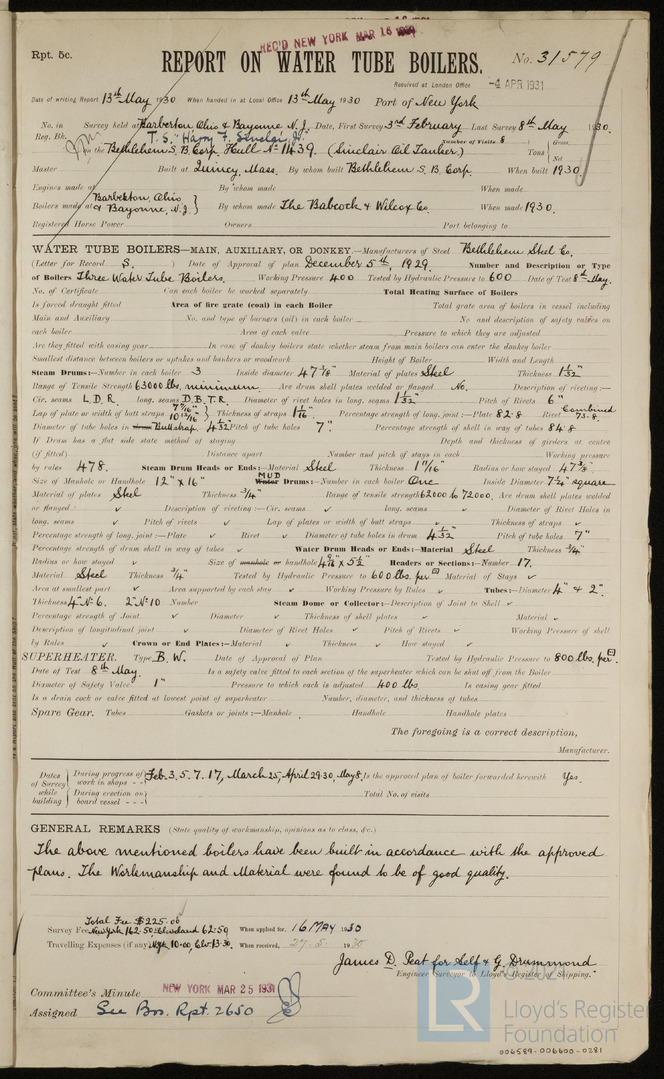 Rpt. 5c.
REC'D NEW YORK MAR 16
REPORT ON WATER TUBE BOILERS.
No. 31579
Received at London Office -4 APR 1931
Date of writing Report 13th May 1930 When handed in at Local Office 13th May 1930 Port of New York
No. in Reg. Bk. Survey held at Barberton Ohio & Bayonne N.J. Date, First Survey 3rd February Last Survey 8th May 1930.
T.S. "Harry F. Sinclair, Jr." Number of Visits 8
on the Bethlehem S.B. Corp. Hull No 1439. (Sinclair Oil Tanker) Tons Gross Net
Master Built at Quincy, Mass. By whom built Bethlehem S.B. Corp. When built 1930.
Engines made at By whom made When made
Boilers made at Barberton, Ohio & Bayonne, N.J. By whom made The Babcock & Wilcox Co. When made 1930.
Registered Horse Power Owners Port belonging to
WATER TUBE BOILERS—MAIN, AUXILIARY, OR DONKEY.—Manufacturers of Steel Bethlehem Steel Co.
(Letter for Record S. ) Date of Approval of plan December 5th, 1929. Number and Description or Type
of Boilers Three Water Tube Boilers Working Pressure 400 Tested by Hydraulic Pressure to 600 Date of Test 8th May.
No. of Certificate Can each boiler be worked separately Total Heating Surface of Boilers
Is forced draught fitted Area of fire grate (coal) in each Boiler Total grate area of boilers in vessel including
Main and Auxiliary No. and type of burners (oil) in each boiler No. and description of safety valves on
each boiler Area of each valve Pressure to which they are adjusted
Are they fitted with easing gear In case of donkey boilers state whether steam from main boilers can enter the donkey boiler
Smallest distance between boilers or uptakes and bunkers or woodwork Height of Boiler Width and Length
Steam Drums:—Number in each boiler 3 Inside diameter 47 7/8" Material of plates Steel Thickness 1 1/32"
Range of Tensile Strength 63000 lbs. minimum. Are drum shell plates welded or flanged No. Description of riveting:—
Cir. seams L.D.R. long. seams D.B.T.R. Diameter of rivet holes in long. seams 1 1/32" Pitch of Rivets 6"
Lap of plate or width of butt straps 10 13/16" Thickness of straps 1/16" Percentage strength of long. joint:—Plate 82.8 Rivet Combined 73.8.
Diameter of tube holes in drum Buttstrap. 4 1/32" Pitch of tube holes 7". Percentage strength of shell in way of tubes 84.8
If Drum has a flat side state method of staying Depth and thickness of girders at centre
(if fitted) Distance apart Number and pitch of stays in each Working pressure
by rules 478. Steam Drum Heads or Ends:—Material Steel Thickness 1 1/16" Radius or how stayed 47 3/8"
Size of Manhole or Handhole 12" x 16" Water MUD Drums:—Number in each boiler One Inside Diameter 7 1/4" square
Material of plates Steel Thickness 3/4" Range of tensile strength 62000 to 72000. Are drum shell plates welded
or flanged ✓ Description of riveting:—Cir. seams ✓ long. seams ✓ Diameter of Rivet Holes in
long. seams ✓ Pitch of rivets ✓ Lap of plates or width of butt straps ✓ Thickness of straps ✓
Percentage strength of long. joint:—Plate ✓ Rivet ✓ Diameter of tube holes in drum 4 1/32" Pitch of tube holes 7"
Percentage strength of drum shell in way of tubes ✓ Water Drum Heads or Ends:—Material Steel Thickness 3/4"
Radius or how stayed ✓ Size of manhole or handhole 4 9/16" x 5 1/2" Headers or Sections:—Number 17.
Material Steel Thickness 3/4" Tested by Hydraulic Pressure to 600 lbs. per □" Material of Stays ✓
Area at smallest part ✓ Area supported by each stay ✓ Working Pressure by Rules ✓ Tubes:—Diameter 4" & 2".
Thickness 4" No 6. 2" No 10 Number Steam Dome or Collector:—Description of Joint to Shell ✓
Percentage strength of Joint ✓ Diameter ✓ Thickness of shell plates ✓ Material ✓
Description of longitudinal joint ✓ Diameter of Rivet Holes ✓ Pitch of Rivets ✓ Working Pressure of shell
by Rules ✓ Crown or End Plates:—Material ✓ Thickness ✓ How stayed ✓
SUPERHEATER. Type B.W. Date of Approval of Plan Tested by Hydraulic Pressure to 800 lbs. per □".
Date of Test 8th May. Is a safety valve fitted to each section of the superheater which can be shut off from the Boiler
Diameter of Safety Valve 1" Pressure to which each is adjusted 400 lbs. Is easing gear fitted
Is a drain cock or valve fitted at lowest point of superheater Number, diameter, and thickness of tubes
Spare Gear. Tubes Gaskets or joints:—Manhole Handhole Handhole plates
The foregoing is a correct description,
Manufacturer.
Dates of Survey while building During progress of work in shops - - Feb. 3.5.7.17, March 25, April 29.30, May 8. Is the approved plan of boiler forwarded herewith Yes.
During erection on board vessel - - - Total No. of visits
GENERAL REMARKS (State quality of workmanship, opinions as to class, &c.)
The above mentioned boilers have been built in accordance with the approved
plans. The Workmanship and Material were found to be of good quality.
Total Fee $225.00
Survey Fee New York 162.50 Cleveland 62.50 When applied for, 16 MAY 1930
Travelling Expenses (if any) N.Yk 10.00, Clev 13.30. When received, 27.5. 1930
James D. Peat for Self & G. Drummond
Engineer Surveyor to Lloyd's Register of Shipping.
Committee's Minute NEW YORK MAR 25 1931
Assigned See Bos. Rpt. 2650
LR
Lloyd's Register
Foundation
006589-006600-0281